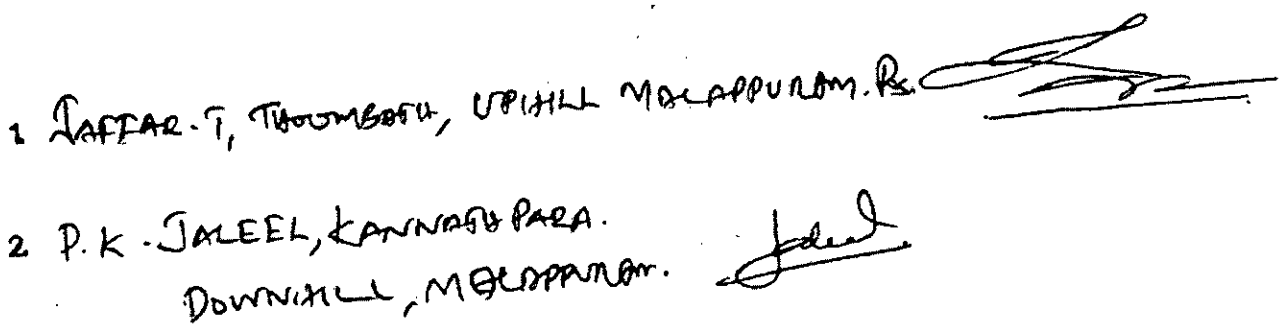 1 JAFFAR.T, THOOMBATH, UPHILL MALAPPURAM. Rs.
2 P.K. JALEEL, KANNATH PARA.
DOWNHILL, MALAPPURAM. Jaleel